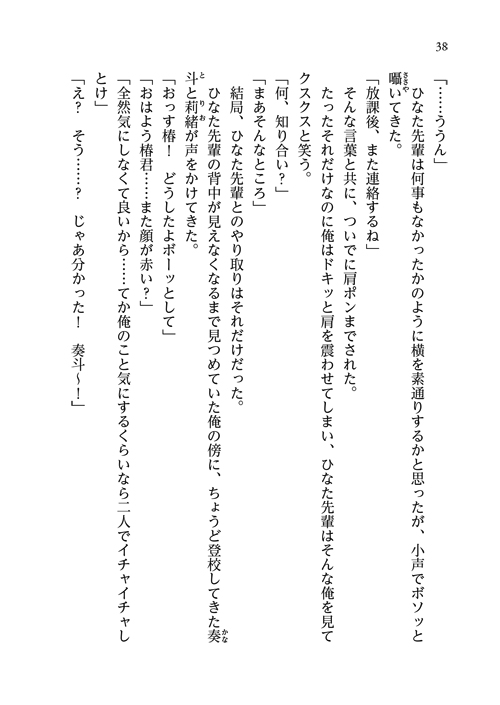 38
「……ううん」
　ひなた先輩は何事もなかったかのように横を素通りするかと思ったが、小声でボソッと
囁いてきた。
ささや
「放課後、また連絡するね」
　そんな言葉と共に、ついでに肩ポンまでされた。
　たったそれだけなのに俺はドキッと肩を震わせてしまい、ひなた先輩はそんな俺を見て
クスクスと笑う。
「何、知り合い？」
「まあそんなところ」
　結局、ひなた先輩とのやり取りはそれだけだった。
　ひなた先輩の背中が見えなくなるまで見つめていた俺の傍に、ちょうど登校してきた奏
かな
斗と莉緒が声をかけてきた。
と　りお
「おっす椿！　どうしたよボーッとして」
「おはよう椿君……また顔が赤い？」
「全然気にしなくて良いから……てか俺のこと気にするくらいなら二人でイチャイチャし
とけ」
「え？　そう……？　じゃあ分かった！　奏斗〜！」